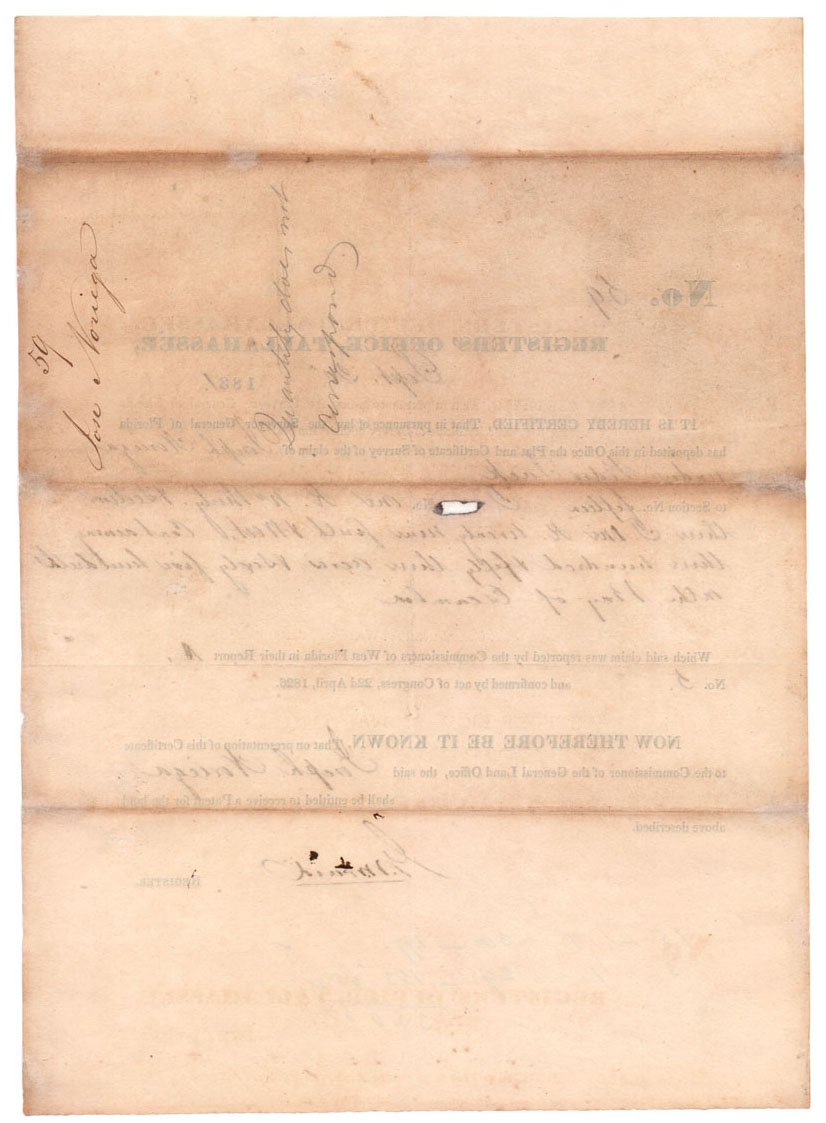 59
Jose Noriega
Quantity does not
correspond.
No. 59
REGISTERS' OFFICE, TALLAHASSEE,
Sept. 1831
IT IS HEREBY CERTIFIED, That in pursuance of law the Surveyor General of Florida
has deposited in this Office the Plat and Certificate of Survey of the claim of Joseph Noriega
to Section No. fifteen No. one R. thirty Section
three T. two R. twenty nine South & West. Containing
three hundred & fifty three acres & sixty five hundredths
on the Bay of Escambia
Which said claim was reported by the Commissioners of West Florida in their Report A,
No. 5. and confirmed by act of Congress, 22d April, 1826.
NOW THEREFORE BE IT KNOWN, That on presentation of this Certificate
to the Commissioner of the General Land Office, the said Joseph Noriega
shall be entitled to receive a Patent for the land
above described
REGISTER.